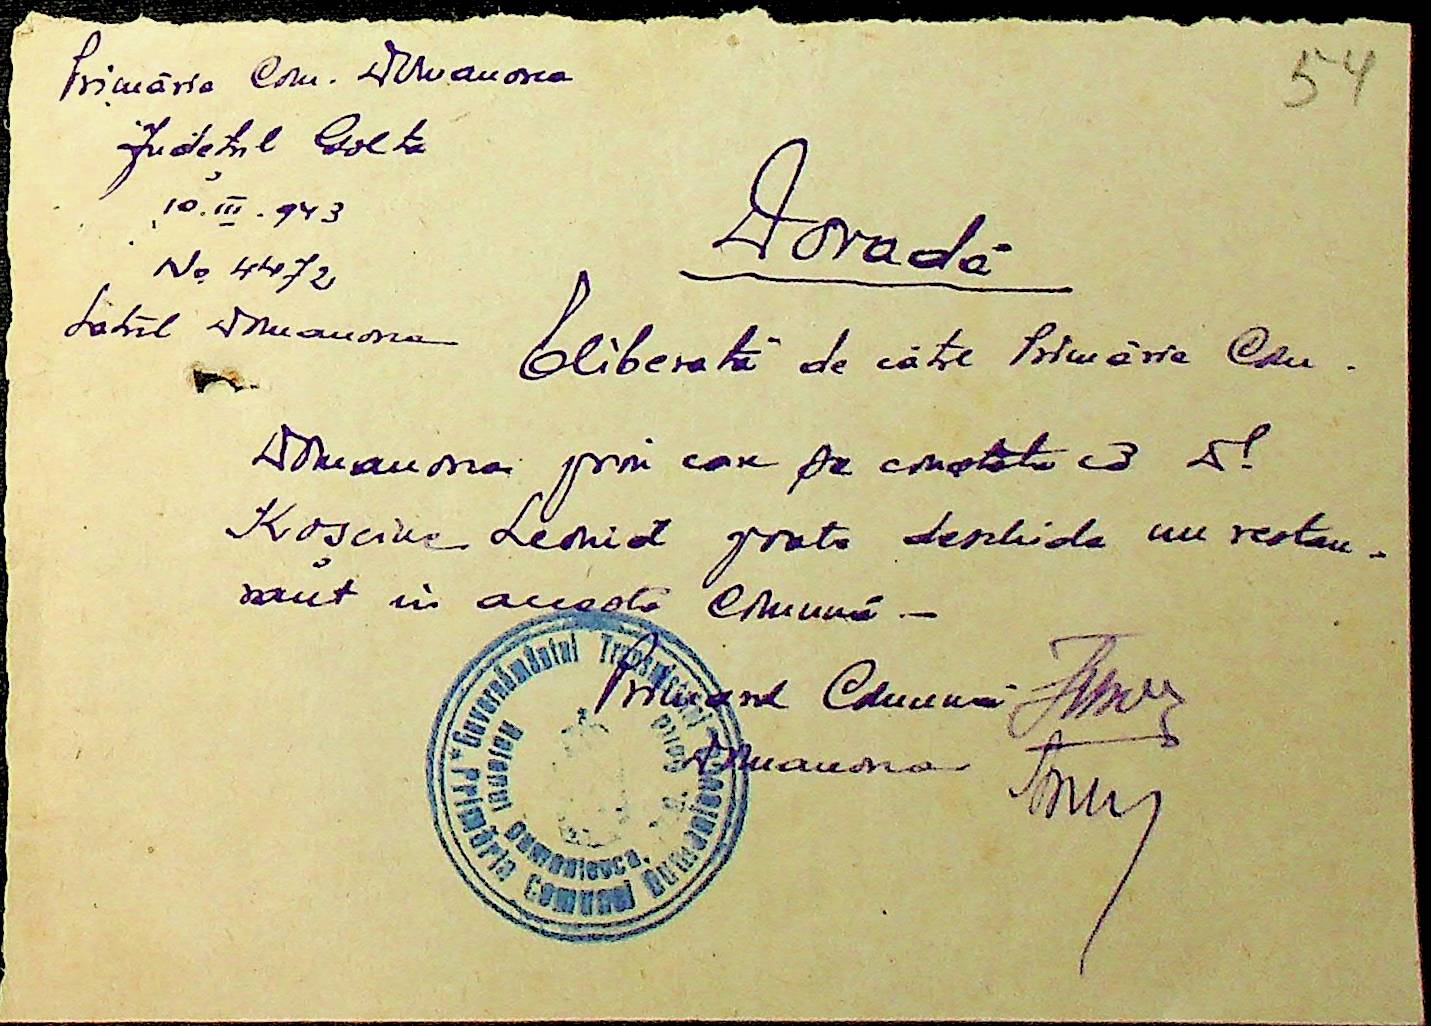 54
Primăria Com. Domanovca
Județul Golta
10.III.943
No 4472
Satul Domanovca
Dovadă
Eliberată de către Primăria Com.
Domanovca prin care se constată că Dl.
Leonid poate deschide un restau-
rant în această Comună –
Primarul Comunei
Domanovca
Guvernământul Transnistriei
Primăria Comunei Dumanievca
Raionul Dumanievca,